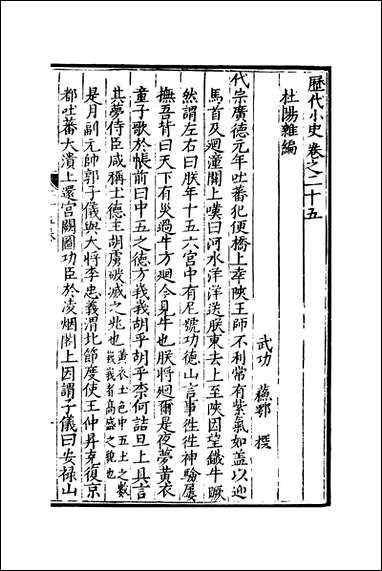 歷代小史卷之二十五
杜陽雜編
武功 蘇鄂 撰
代宗廣德元年吐蕃犯便橋上幸陝王師不利常有紫氣如蓋以迎
馬首及迴潼關上嘆曰河水洋洋送朕東去上至陝因望鐵牛蹶
然謂左右曰朕年十五六宮中有尼號功德山言事徃徃神驗屢
撫吾背曰天下有災遇牛方迴今見牛也朕將迴爾是夜夢黃衣
童子歌於帳前曰中五之德方峩峩胡乎胡乎柰何詰旦上具言
其夢侍臣咸稱土德王胡虜破滅之兆也黃衣土色中五土之數
峩峩者高盛之貌也
是月副元帥郭子儀與大將李忠義渭北節度使王仲昇克復京
都吐蕃大潰上還宮闕圖功臣於凌烟閣上因謂子儀曰安祿山